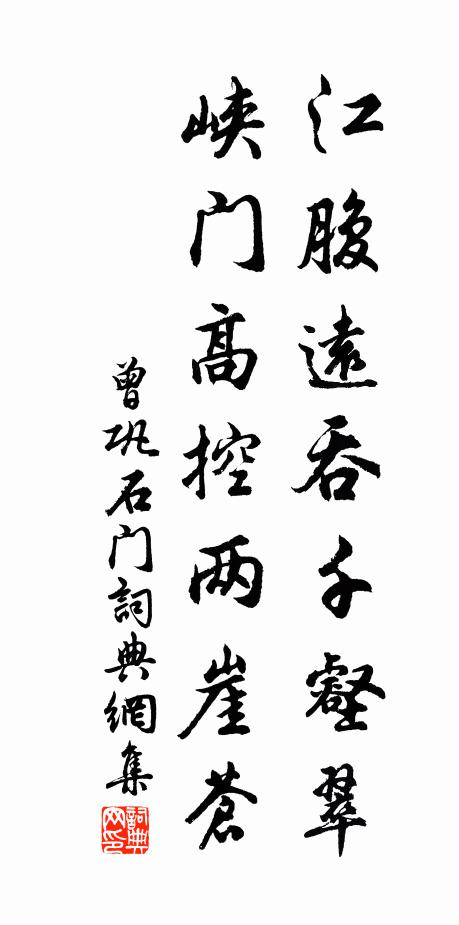 江腹遠吞千壑翠
峡门高控两崖蒼
曾巩石门詞典網集
詞典网印